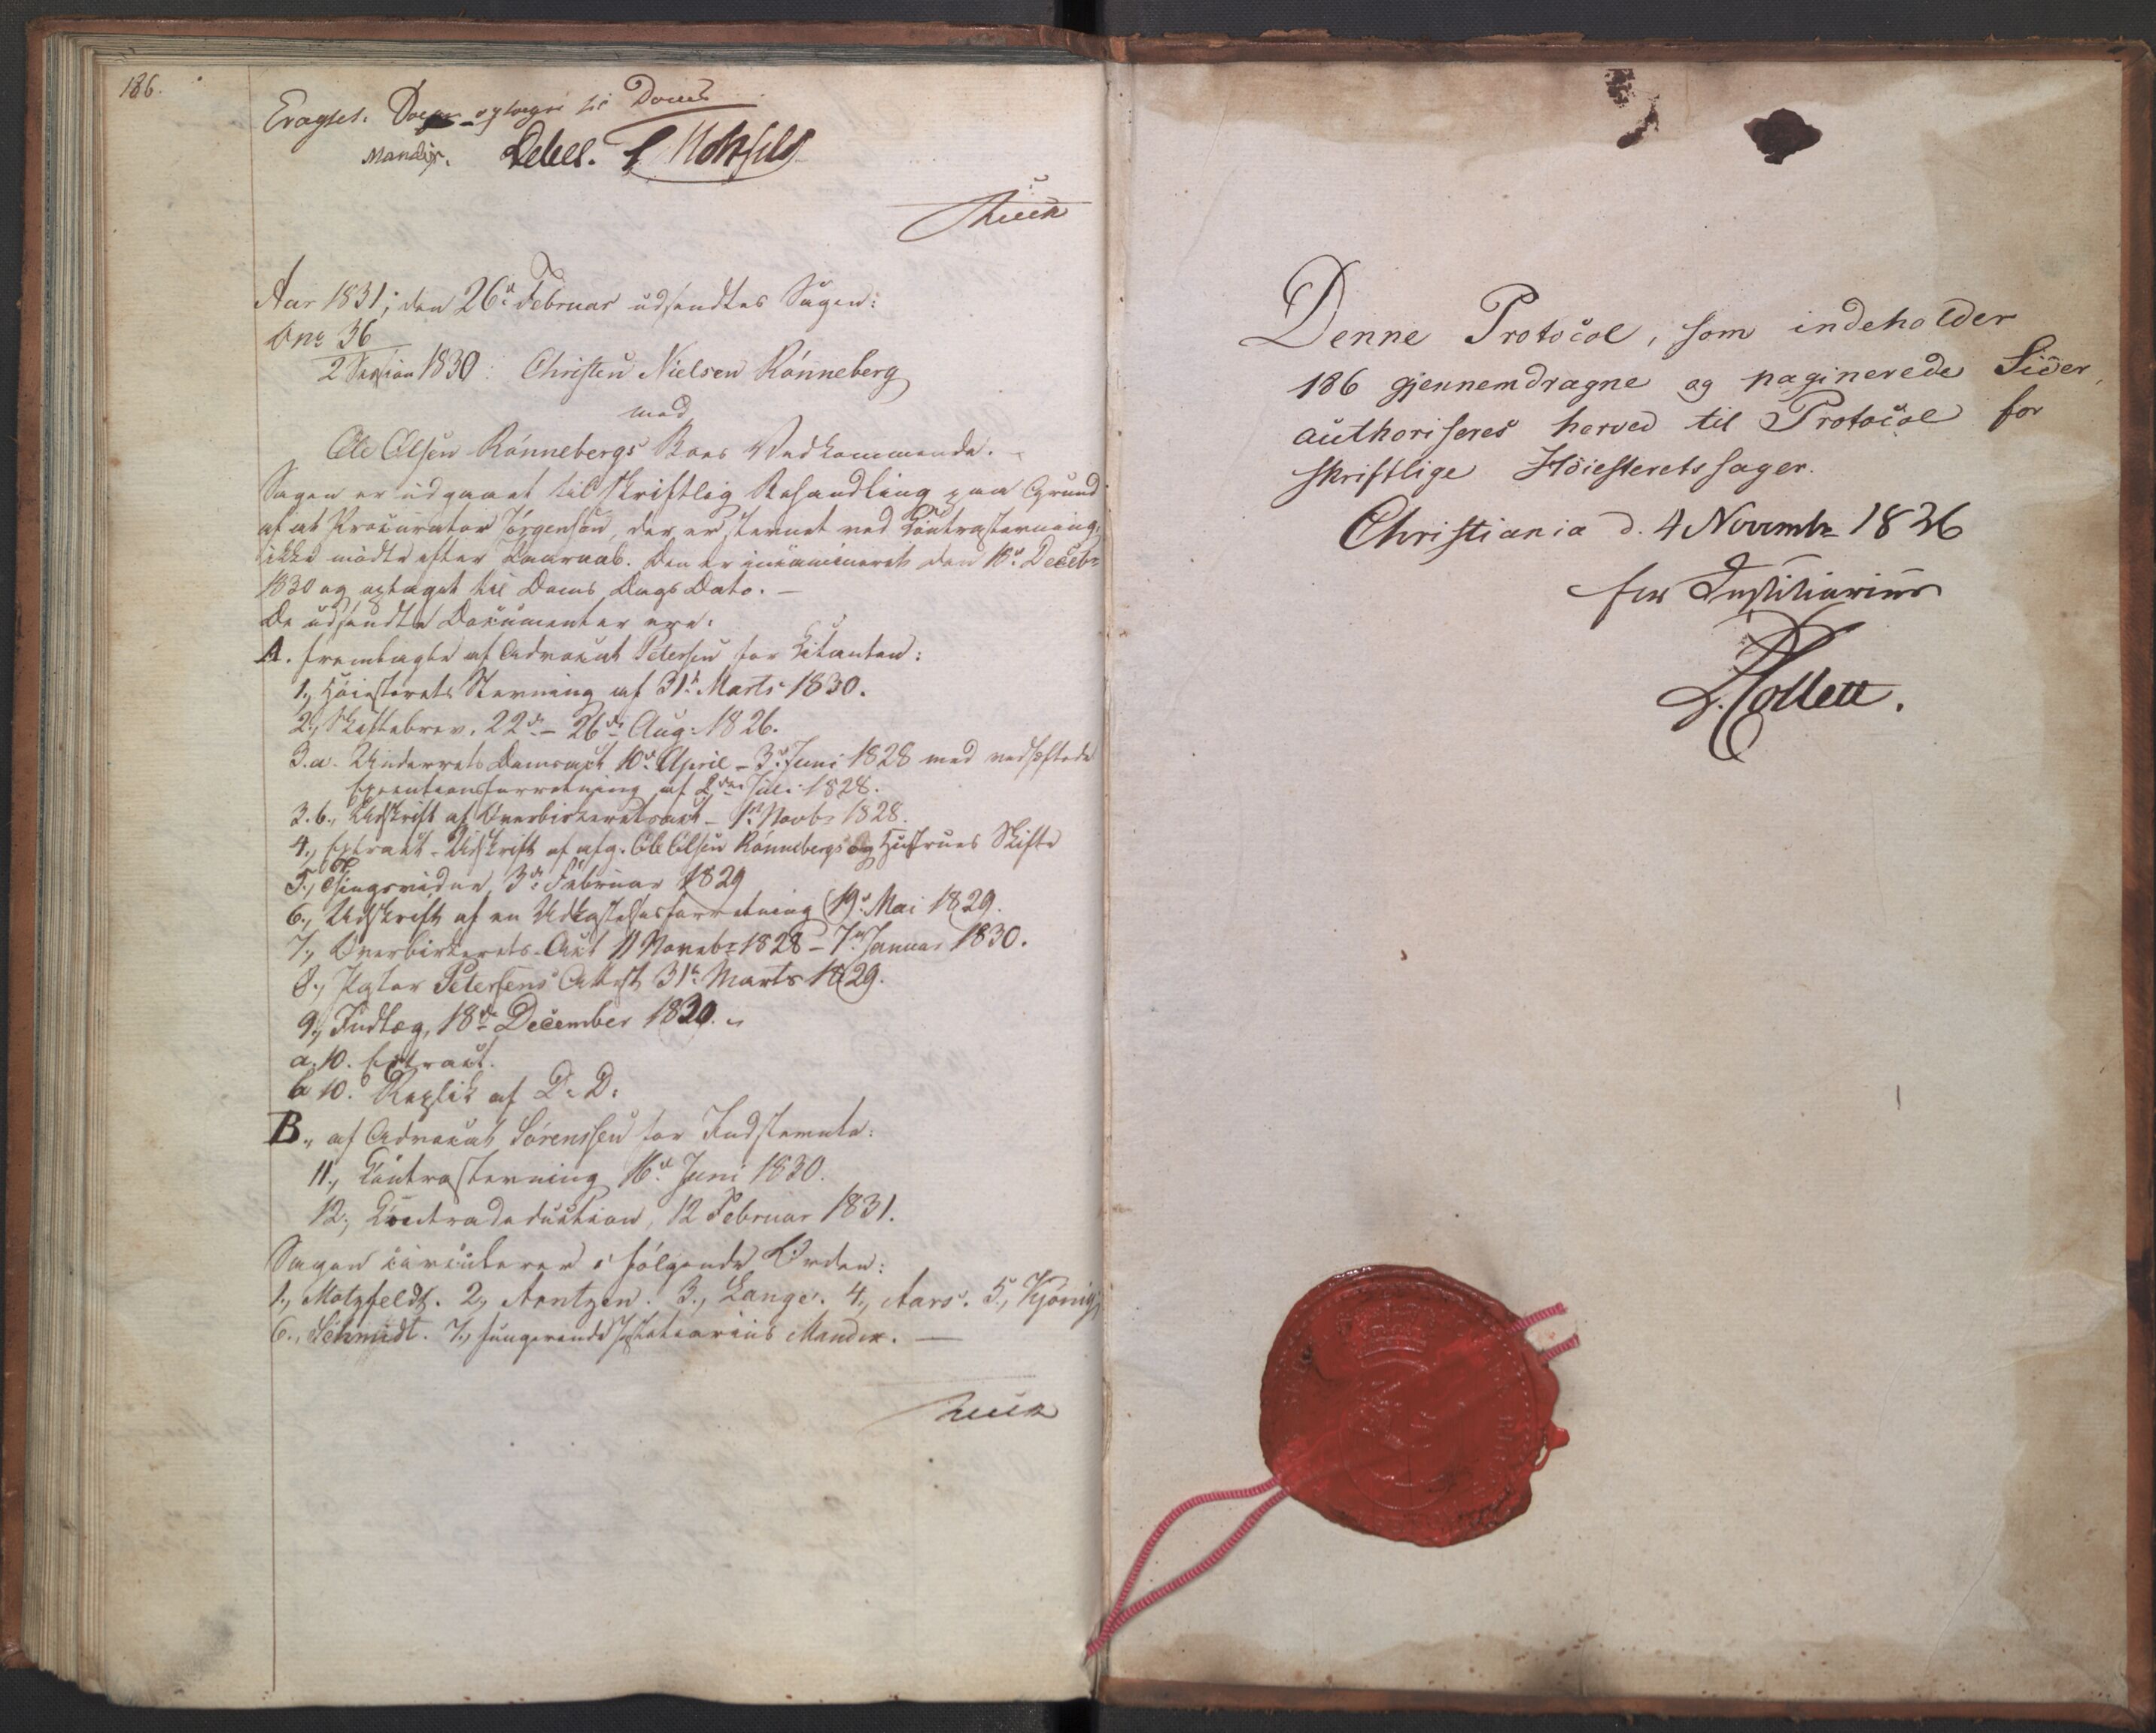 186.
Eragtet. Sagen optages til Doms
Mandix. Debes. Motzfeldt
Aar 1831, den 26de Februar udsendtes Sagen:
No 36
2 Session 1830: Christen Nielsen Rønneberg
mod
Ole Olsen Rønnebergs Boes Vedkommende.
Sagen er udgaaet til skriftlig Behandling paa Grund
af at Procurator Jørgenson, der er stevnet ved Contrastevning,
ikke mødte efter Laurdab. Den er incamineret den 18de Decebr
1830 og optaget til Doms Dags Dato. —
De udsendte Documenter ere:
A. fremlagte af Advocat Petersen for Citanten:
1., Høiesterets Stevning af 31te Marts 1830.
2., Skiftebrev, 22de – 26de Aug: 1826.
3.a. Underrets Domsact 10de April – 3de Juni 1828 med vedheftede
Executionsforretning af 2den Juli 1828.
3.b., Udskrift af Overbirkeretsact – 1ste Novbr 1828.
4., Extract-Udskrift af afg. Ole Olsen Rønnebergs og Hustrues Skifte
5., Thingsvidne 3de Februar 1829
6., Udskrift af en Udkastelsesforretning 19de Mai 1829.
7., Overbirkerets-Act 11 Novebr 1828 – 7de Januar 1830.
8., Pastor Petersens Attest 31te Marts 1829.
9., Indlæg, 18de December 1830.
a. 10. Extract.
b 10. Replik af D: D:
B., af Advocat Sørenssen for Indstevnte:
11., Contrastevning 16de Juni 1830.
12., Contradeduction, 12 Februar 1831.
Sagen circulerer i følgende Orden:
1., Motzfeldt. 2., Arntzen. 3., Lange. 4., Aars. 5., Kjønig,
6., Schmidt. 7., fungerende Justitiarius Mandix. —
Denne Protocol, som indeholder
186 gjennemdragne og paginerede Sider,
authoriseres herved til Protocol for
skriftlige Höiesteretssager.
Christiania d. 4 Novembr 1826
for Justitiarius
J. Collett.